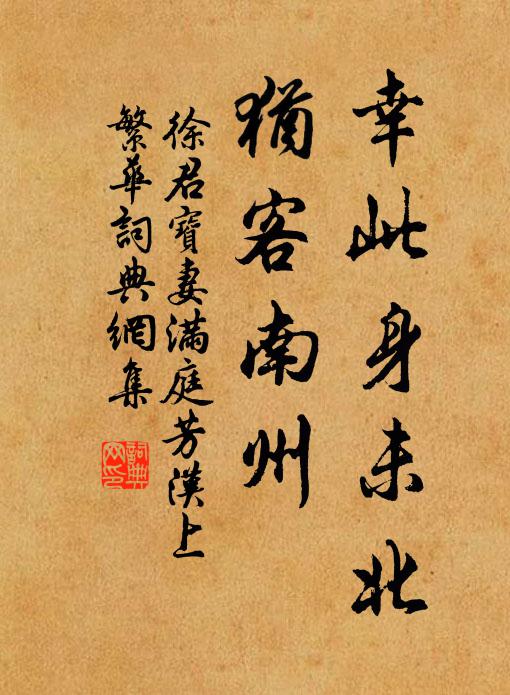 幸此身未北
猶客南州
徐君寶妻滿庭芳漢上
繁華詞典網集
詞典
网印